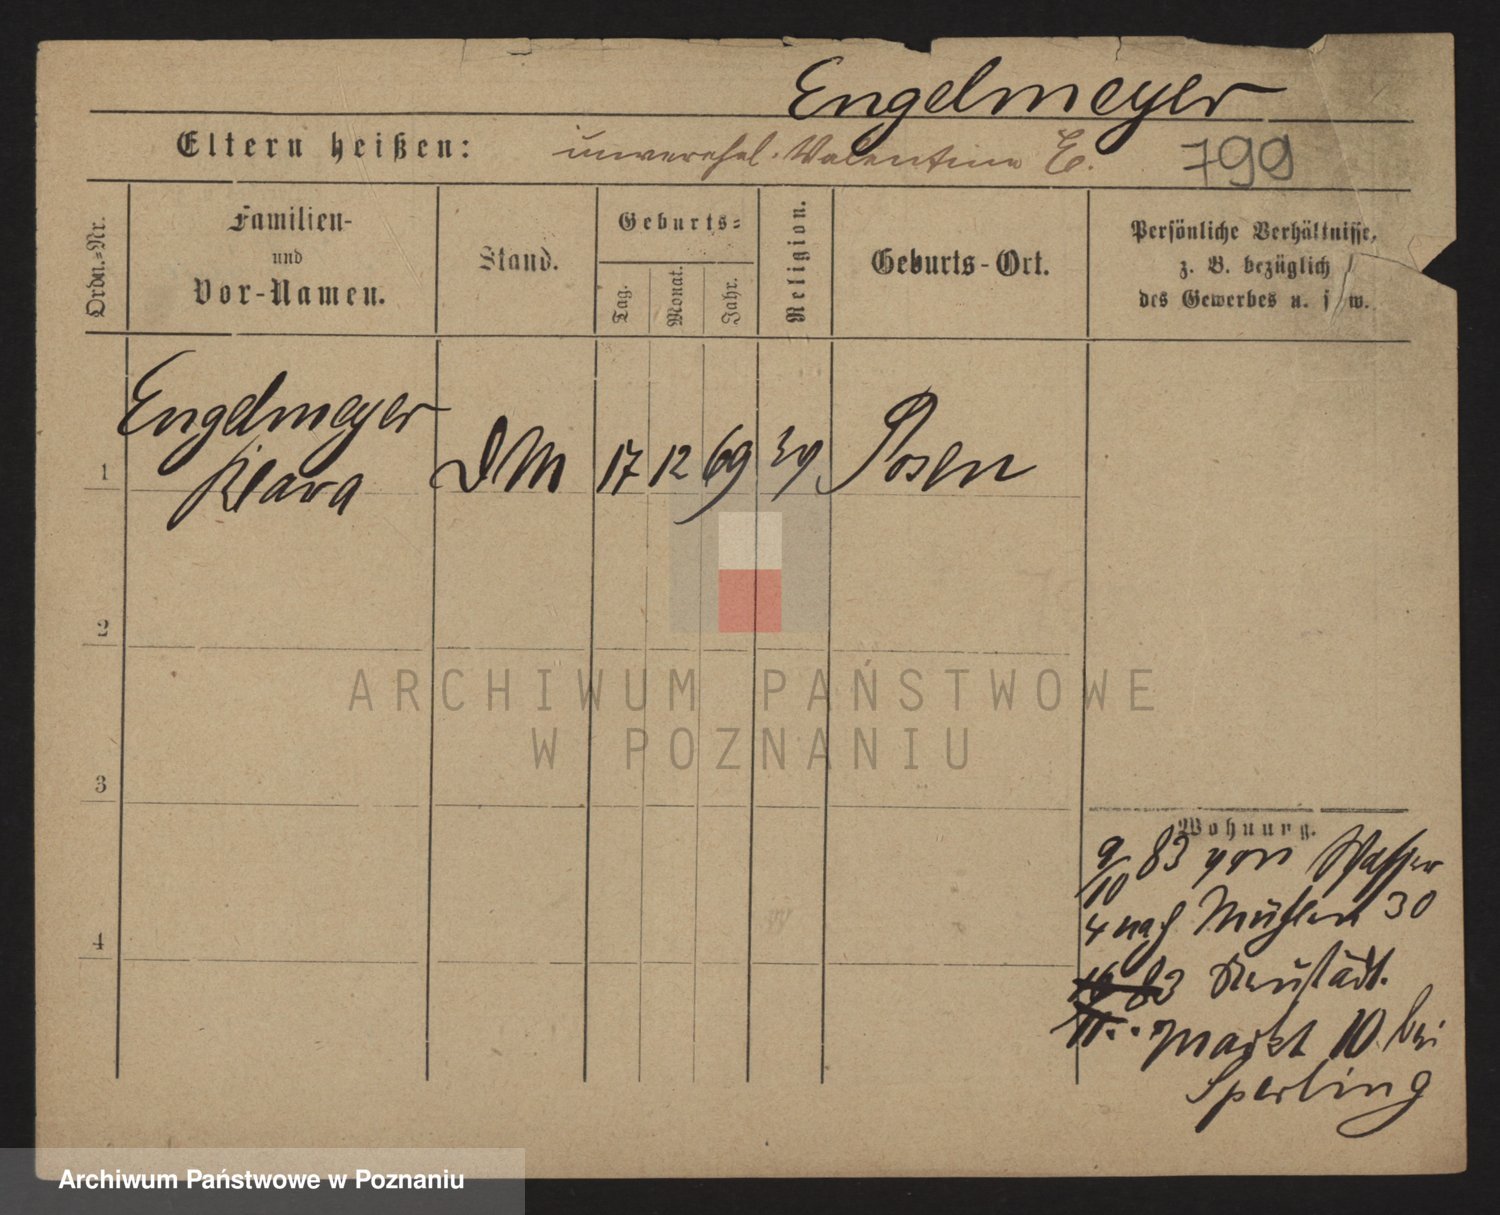 Engelmeyer
Eltern heißen: unverehel. Valentine E. 799
Ordn.-Nr.
Familien-
und
Vor-Namen.
Stand.
Geburts-
Tag.
Monat.
Jahr.
Religion.
Geburts-Ort.
Persönliche Verhältnisse,
z. B. bezüglich
des Gewerbes u. s. w.
Engelmeyer
1 Klara DM 17 12 69 Posen
2
3
4
Wohnung.
9/10 83 von Wasser
4 nach Mühlen 30
83 Neustädt.
11. Markt 10 bei
Sperling
ARCHIWUM PAŃSTWOWE
W POZNANIU
Archiwum Państwowe w Poznaniu